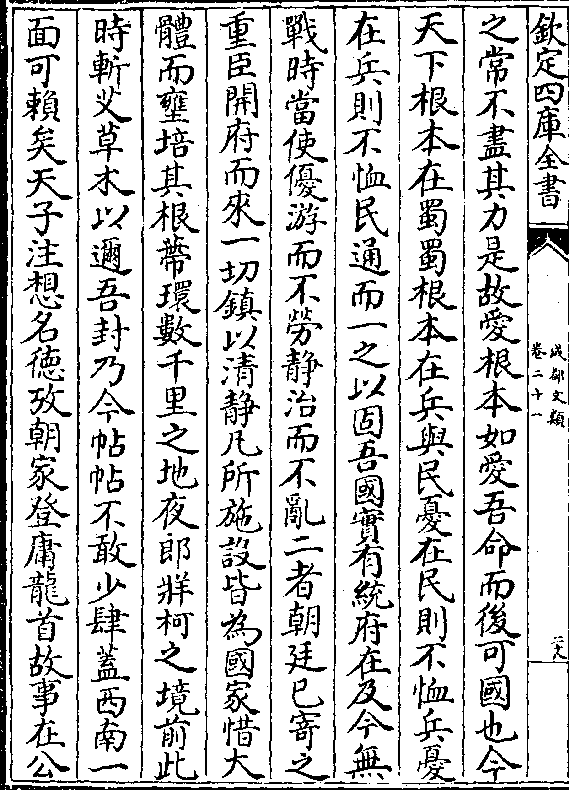 欽定四庫全書
成都文類
卷二十一
之常不盡其力是故愛根本如愛吾命而後可國也今
天下根本在蜀蜀根本在兵與民憂在民則不恤兵憂
在兵則不恤民通而一之以固吾國實有統府在及今無
戰時當使優游而不勞静治而不亂二者朝廷已寄之
重臣開府而來一切鎮以清静凡所施設皆為國家惜大
體而壅培其根蔕環數千里之地夜郎牂柯之境前此
時斬艾草木以邇吾封乃今帖帖不敢少肆蓋西南一
面可賴矣天子注想名徳攷朝家登庸龍首故事在公